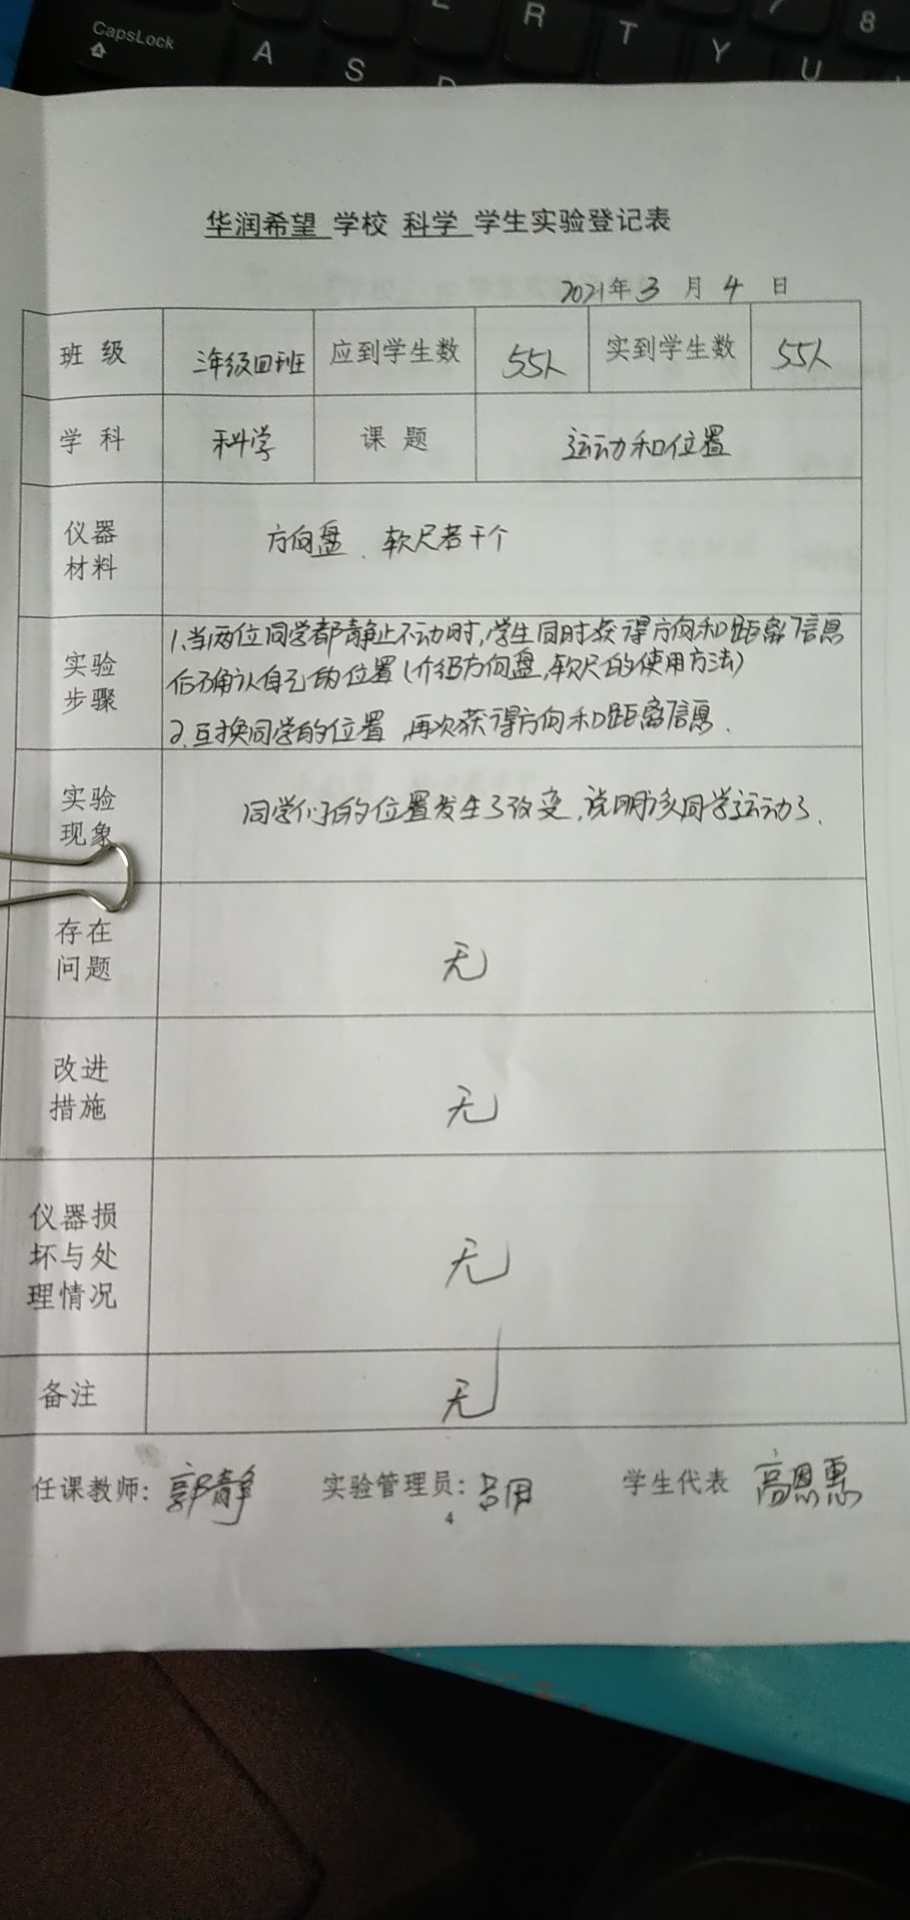 CapsLock
E R T Y U 7 8
A S D
华润希望 学校 科学 学生实验登记表
2021年3月4日
班级 三年级四班 应到学生数 55人 实到学生数 55人
学科 科学 课题 运动和位置
仪器
材料
方向盘、软尺若干个
实验
步骤
1.当两位同学都静止不动时,学生同时获得方向和距离信息
后确认自己的位置(介绍方向盘,软尺的使用方法)
2.互换同学的位置,再次获得方向和距离信息.
实验
现象
同学们的位置发生了改变,说明该同学运动了.
存在
问题
无
改进
措施
无
仪器损
坏与处
理情况
无
备注 无
任课教师: 郭静 实验管理员: 学生代表 高恩惠
4